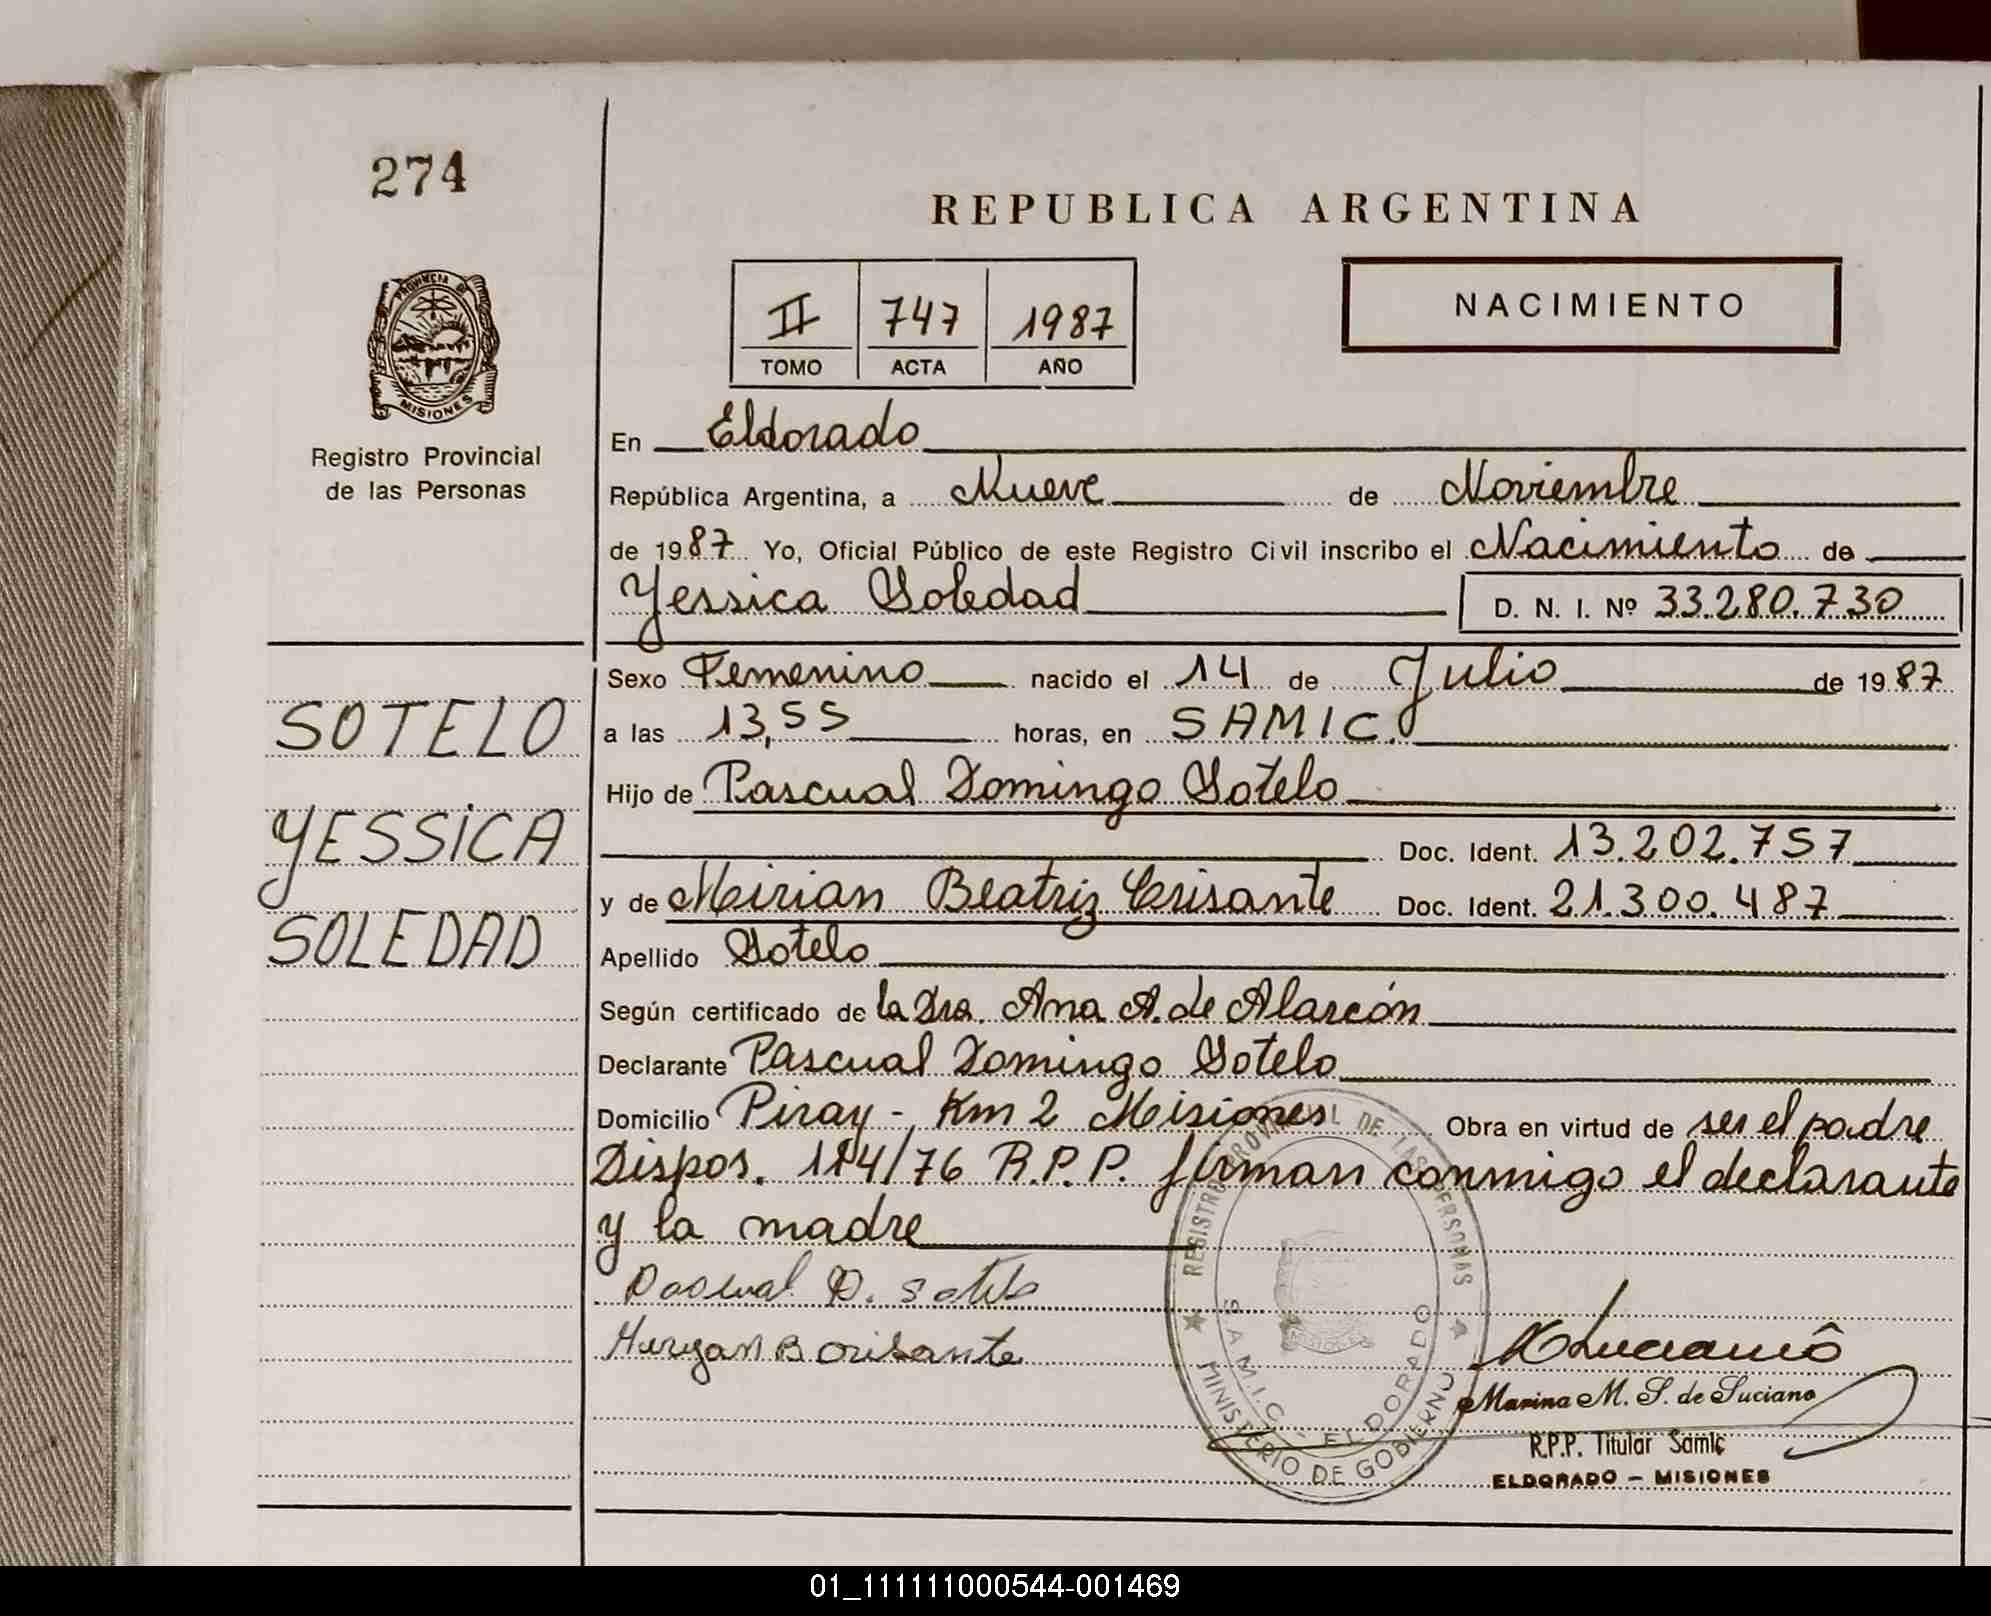 274
PROVINCIA DE
MISIONES
Registro Provincial
de las Personas
SOTELO
YESSICA
SOLEDAD
REPUBLICA ARGENTINA
II 747 1987
TOMO ACTA AÑO
NACIMIENTO
En Eldorado
República Argentina, a Nueve de Noviembre
de 1987 Yo, Oficial Público de este Registro Civil inscribo el Nacimiento de
Yessica Soledad D. N. I. Nº 33.280.730
Sexo Femenino nacido el 14 de Julio de 1987
a las 13,55 horas, en SAMIC.
Hijo de Pascual Domingo Sotelo
Doc. Ident. 13.202.757
y de Mirian Beatriz Crisante Doc. Ident. 21.300.487
Apellido Sotelo
Según certificado de la Dra. Ana A. de Alarcón
Declarante Pascual Domingo Sotelo
Domicilio Piray - Km 2 Misiones Obra en virtud de ser el padre
Dispos. /76 R.P.P. firman conmigo el declarante
y la madre
Pascual D. Sotelo
B Crisante
REGISTRO PROVINCIAL DE LAS PERSONAS
S.A.M.I.C. - ELDORADO
MINISTERIO DE GOBIERNO
Marina M. S. de Luciano
R.P.P. Titular Samic
ELDORADO - MISIONES
01_111111000544-001469